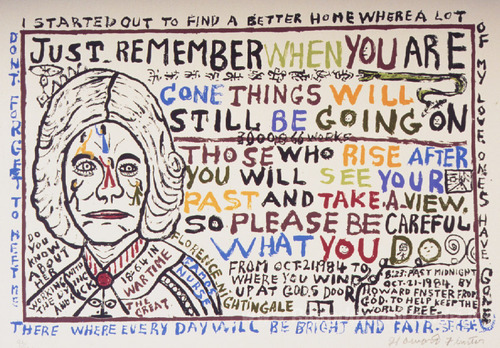 I STARTED OUT TO FIND A BETTER HOME WHERE A LOT
OF MY LOVE ONES HAVE GONE
DONT FORGET TO MEET ME
THERE WHERE EVERY DAY WILL BE BRIGHT AND FAIR.
JUST REMEMBER WHEN YOU ARE
GONE THINGS WILL
STILL BE GOING ON
3000 866 WORKS
THOSE WHO RISE AFTER
YOU WILL SEE YOUR
PAST AND TAKE A VIEW.
SO PLEASE BE CAREFUL
WHAT YOU DO
FROM OCT 21 1984 TO
WHERE YOU WIND
UP AT GODS DOOR
8:23: PAST MIDNIGHT
OCT-21-1984. BY
HOWARD FNSTER FROM
GOD. TO HELP KEEP THE
WORLD FREE.
DO
YOU
KNOW
ABOUT
HER
AND SICK
WAR TIME
THE
GREAT
FLORENCE NIGHTINGALE
NURSE